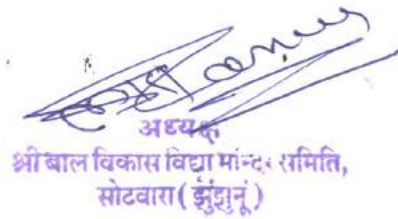 अध्यक्ष
श्री बाल विकास विद्या मन्दिर समिति,
सोटवारा (झुंझुनूं)